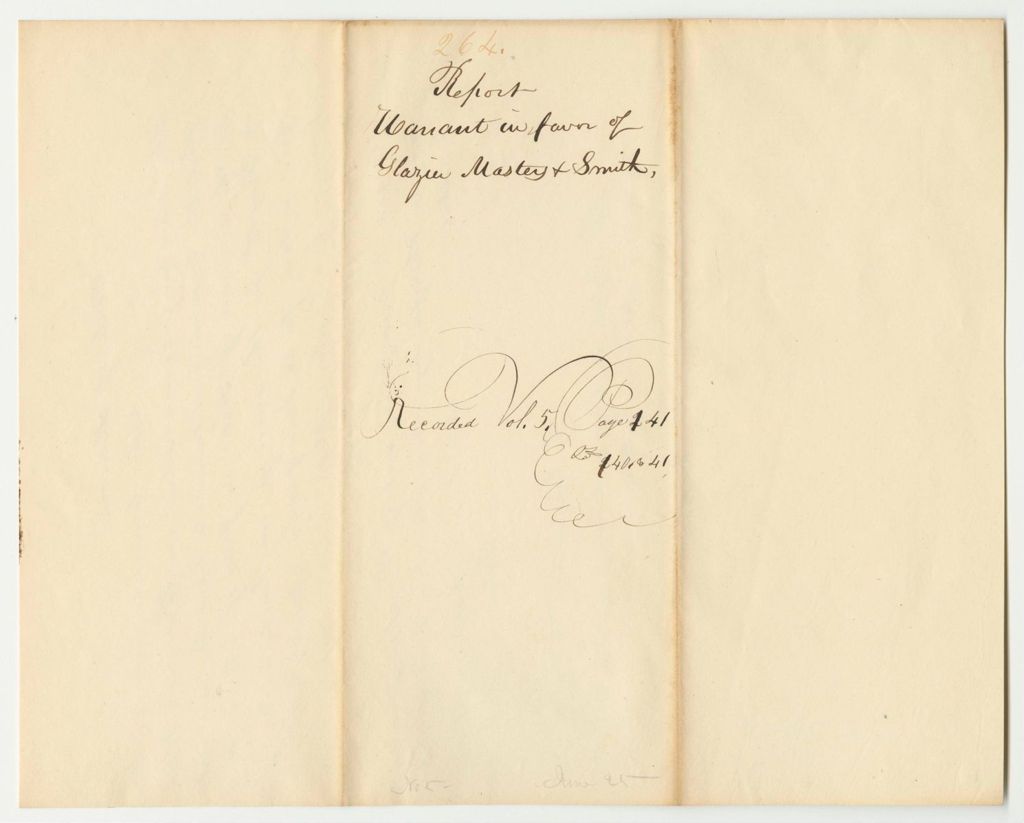 264.
Report
Warrant in favor of
Glazier Masters & Smith,
Recorded Vol. 5. Page 141
140 & 41
June 25